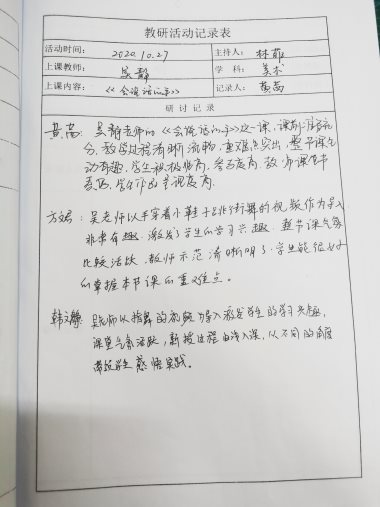 教研活动记录表
活动时间： 2020.10.27 主持人： 林菲
上课教师： 吴静 学 科： 美术
上课内容： 《会说话的手》 记录人： 黄茜
研 讨 记 录
黄茜：吴静老师的《会说话的手》这一课，课前准备充
分，教学过程清晰流畅，重难点突出，整节课生
动有趣，学生积极性高，参与度高，教师课堂
学生作品呈现度高。
吴老师以手穿着小鞋子跳街舞的视频作为导入
非常有趣，激发了学生的学习兴趣，整节课气氛
比较活跃，教师示范清晰明了，学生能很好
的掌握本节课的重难点。
吴老师以指舞的视频导入激发学生的学习兴趣，
课堂气氛活跃，新授过程由浅入深，从不同的角度
带领学生感悟实践。